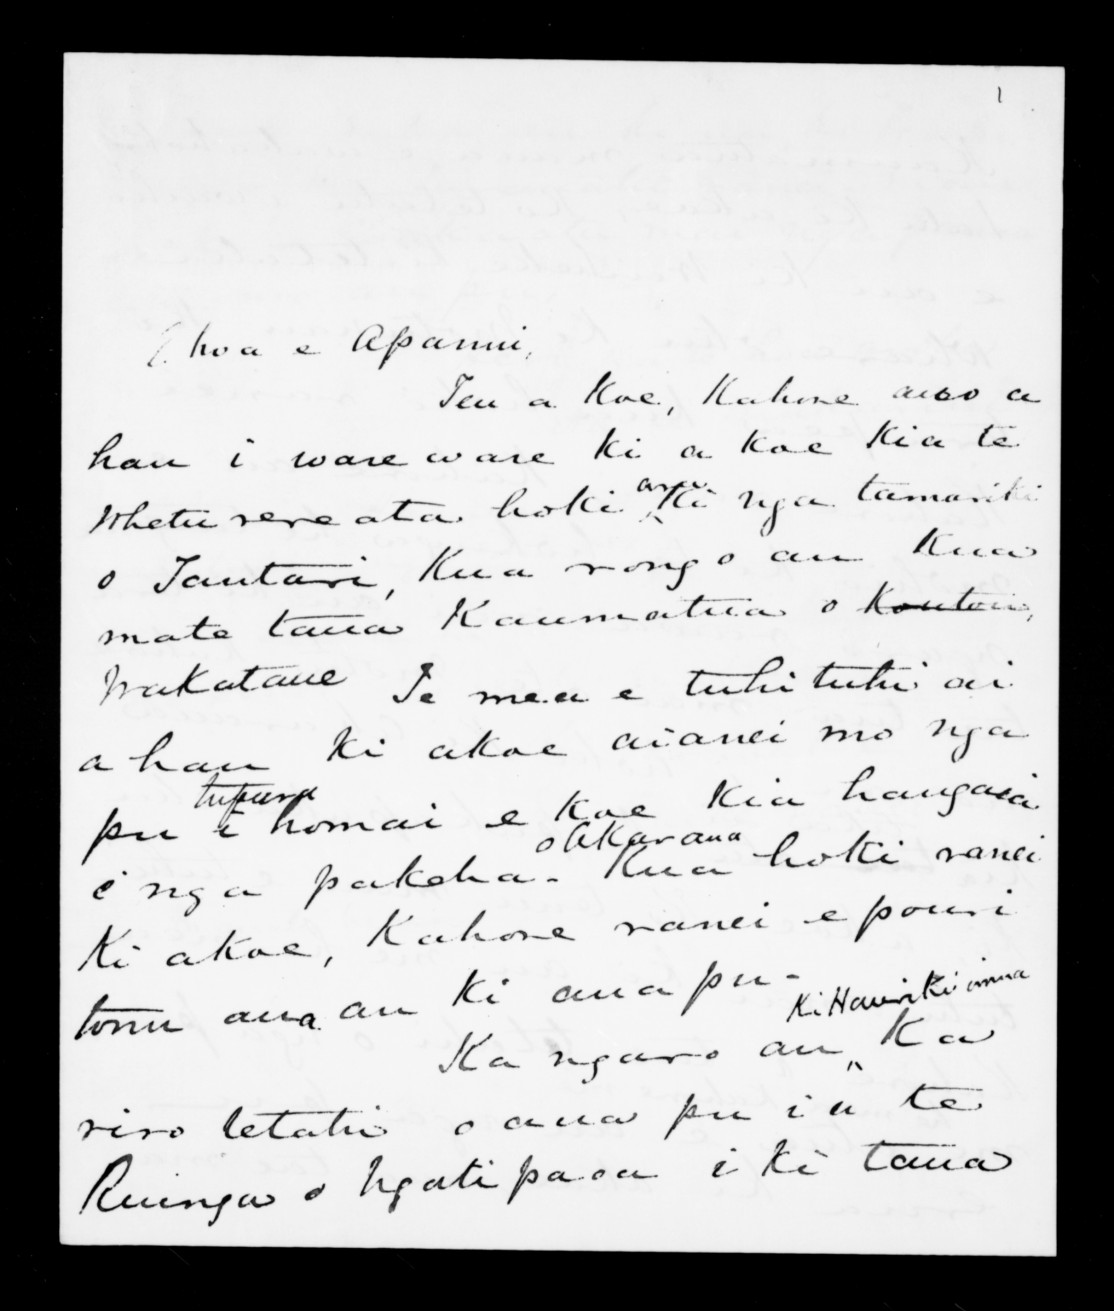 1
E hoa e Apanui,
Tena Koe, Kahore ano a
hau i wareware ki a koe kia te
Whetu rere ata hoki ana ki nga tamariki
o Tautari, Kua rongo au Kua
mate taua Kaumatua o Koutou,
Wakatane Te mea e tuhituhi ai
a hau ki akoe aianei mo nga
pu tupara i homai e koe kia hangaia
e nga pakeha o Akarana. Kua hoki ranei
Ki akoe, Kahore ranei e pouri
tonu ana au ki aua pu-
Ka ngaro au Ki Hauriki inua Ka
riro letahi o aua pu i a te
Ruinga o Ngatipaoa i ki taua